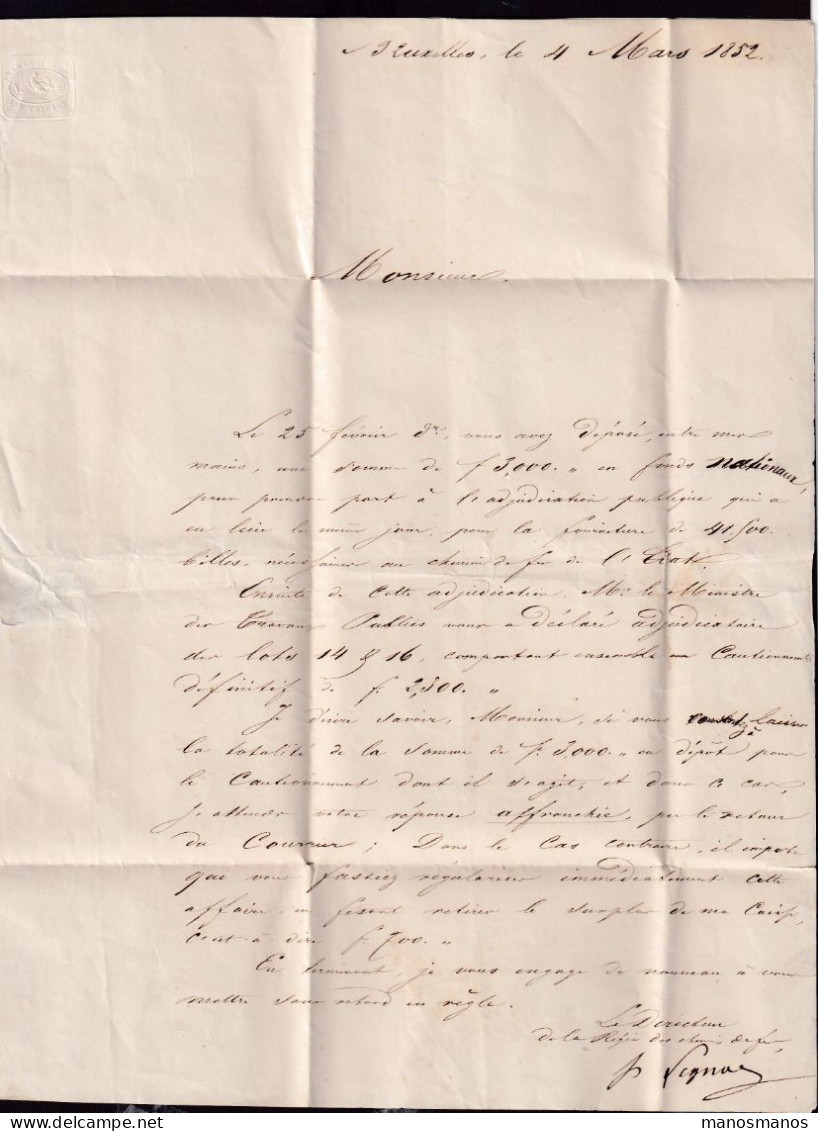 Bruxelles, le 4 Mars 1852.
Monsieur,
Le 25 février dr, vous avez déposé, entre mes
mains, une somme de f 3,000. " en fonds nationaux,
pour prendre part à l'adjudication publique qui a
eu lieu le même jour, pour la fourniture de 41,500
billes, nécessaires au chemin de fer de l'Etat.
Ensuite de cette adjudication, Mr. le Ministre
des Travaux Publics vous a déclaré adjudicataire
des lots 14 & 16, comportant ensemble un Cautionnement
définitif de f. 2,300. "
Je désire savoir, Monsieur, si vous laisser
à
la totalité de la somme de f. 3,000. " en dépôt pour
le Cautionnement dont il s'agit, et dans ce cas,
j'attends votre réponse affranchie, par le retour
du Courrier; Dans le Cas contraire, il importe
que vous fassiez régulariser immédiatement cette
affaire en fesant retirer le surplus de ma Caisse,
c'est-à-dire f. 700. "
En terminant, je vous engage de nouveau à vous
mettre sans retard en règle.
Le Directeur
de la Régie des chemins de fer,
manosmanos